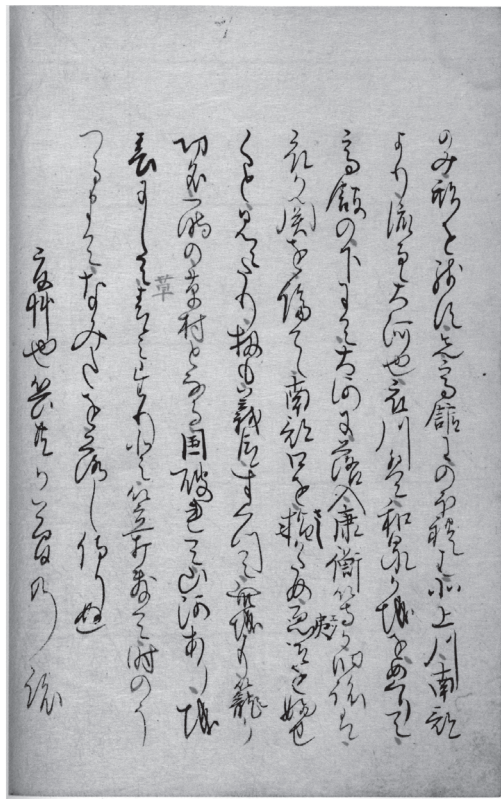 のみ形を残す先高館にのほれは北上川南部
より流るゝ大河也衣川は和泉か城をめくりて
高館の下にて大河に落入康衡等か旧跡は
衣か関を隔て南部口を指堅め夷をふせ
くと見えたり扨も義臣すくつて此城に籠り
功名一時の草村となる国破れて山河あり城
春にして草青みたりと笠打敷て時のう
つるまてなみたを落し侍りぬ
夏艸や兵共か夢の跡